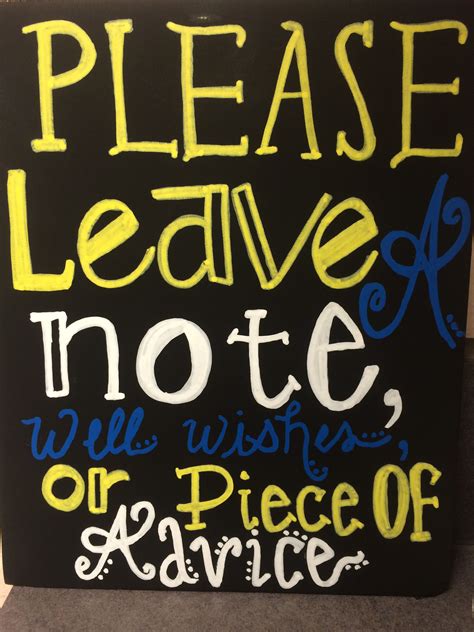 PLEASE
Leave A
note,
Well wishes,
or Piece OF
Advice